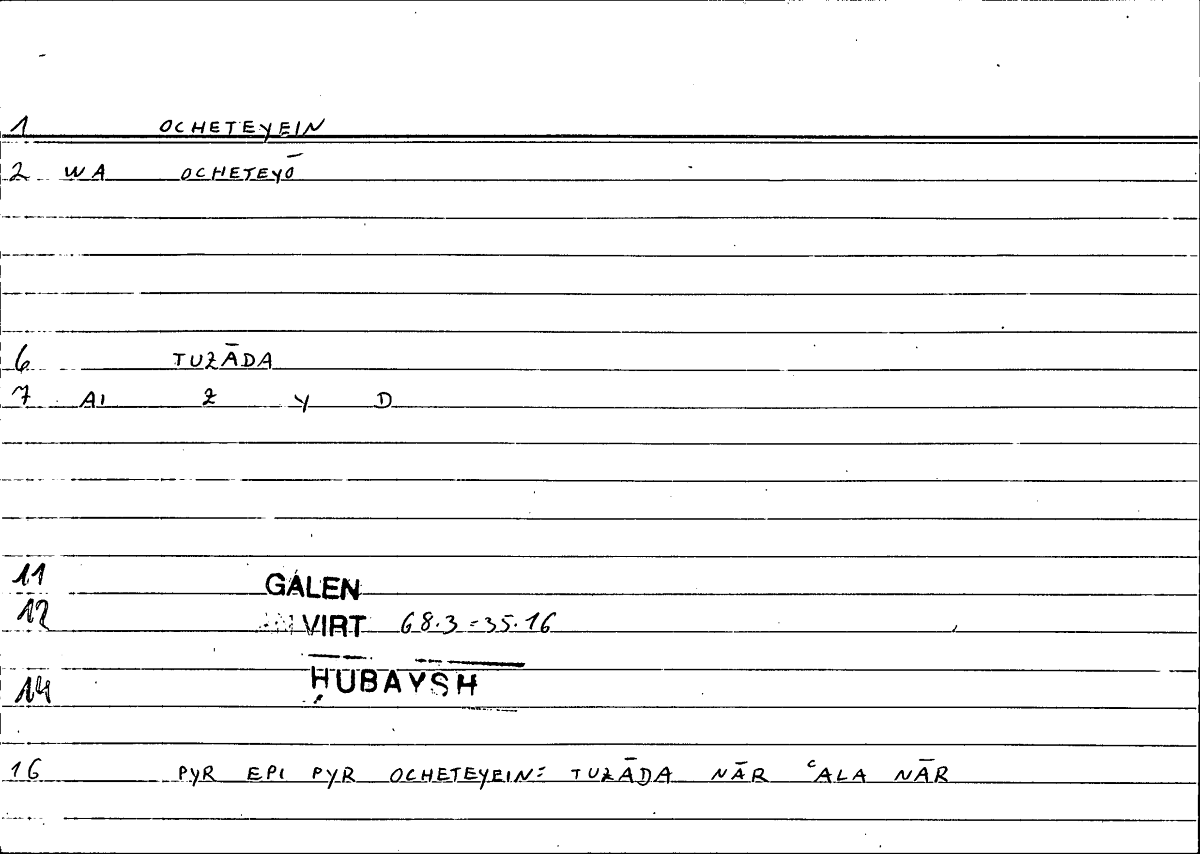 1 OCHETEYEIN
2 WA OCHETEYŌ
6 TUZĀDA
7 AI Z Y D
11 GALEN
12 AN VIRT 68.3 = 35.16
14 ḤUBAYSH
16 PYR EPI PYR OCHETEYEIN = TUZĀDA NĀR ʿALA NĀR